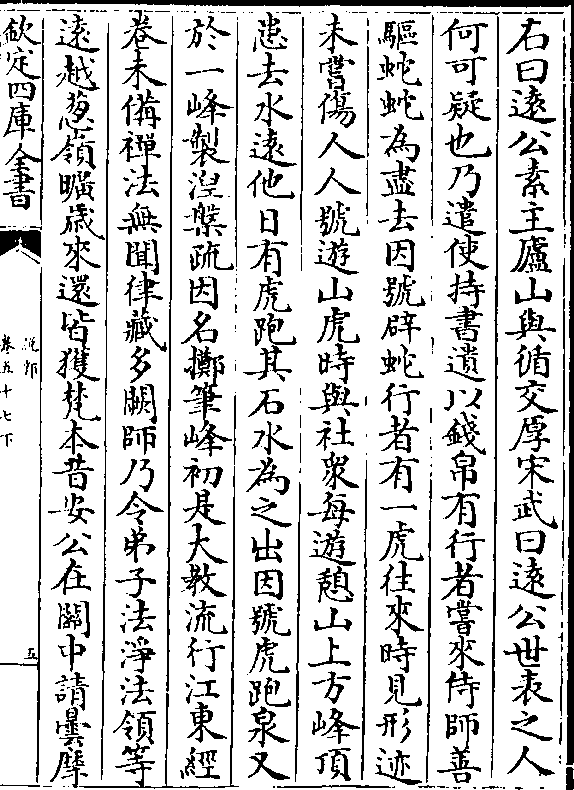 右曰遠公素主廬山與循交厚宋武曰遠公世表之人
何可疑也乃遣使持書遺以錢帛有行者嘗來侍師善
驅蛇蛇為盡去因號辟蛇行者有一虎往來時見形迹
未嘗傷人人號遊山虎時與社衆每遊憩山上方峰頂
患去水遠他日有虎跑其石水為之出因號虎跑泉又
於一峰製湼槃疏因名擲筆峰初是大教流行江東經
卷未備禪法無聞律藏多闕師乃令弟子法淨法領等
遠越葱嶺曠歲來還皆獲梵本昔安公在關中請曇摩
欽定四庫全書
說郛
卷五十七下
五